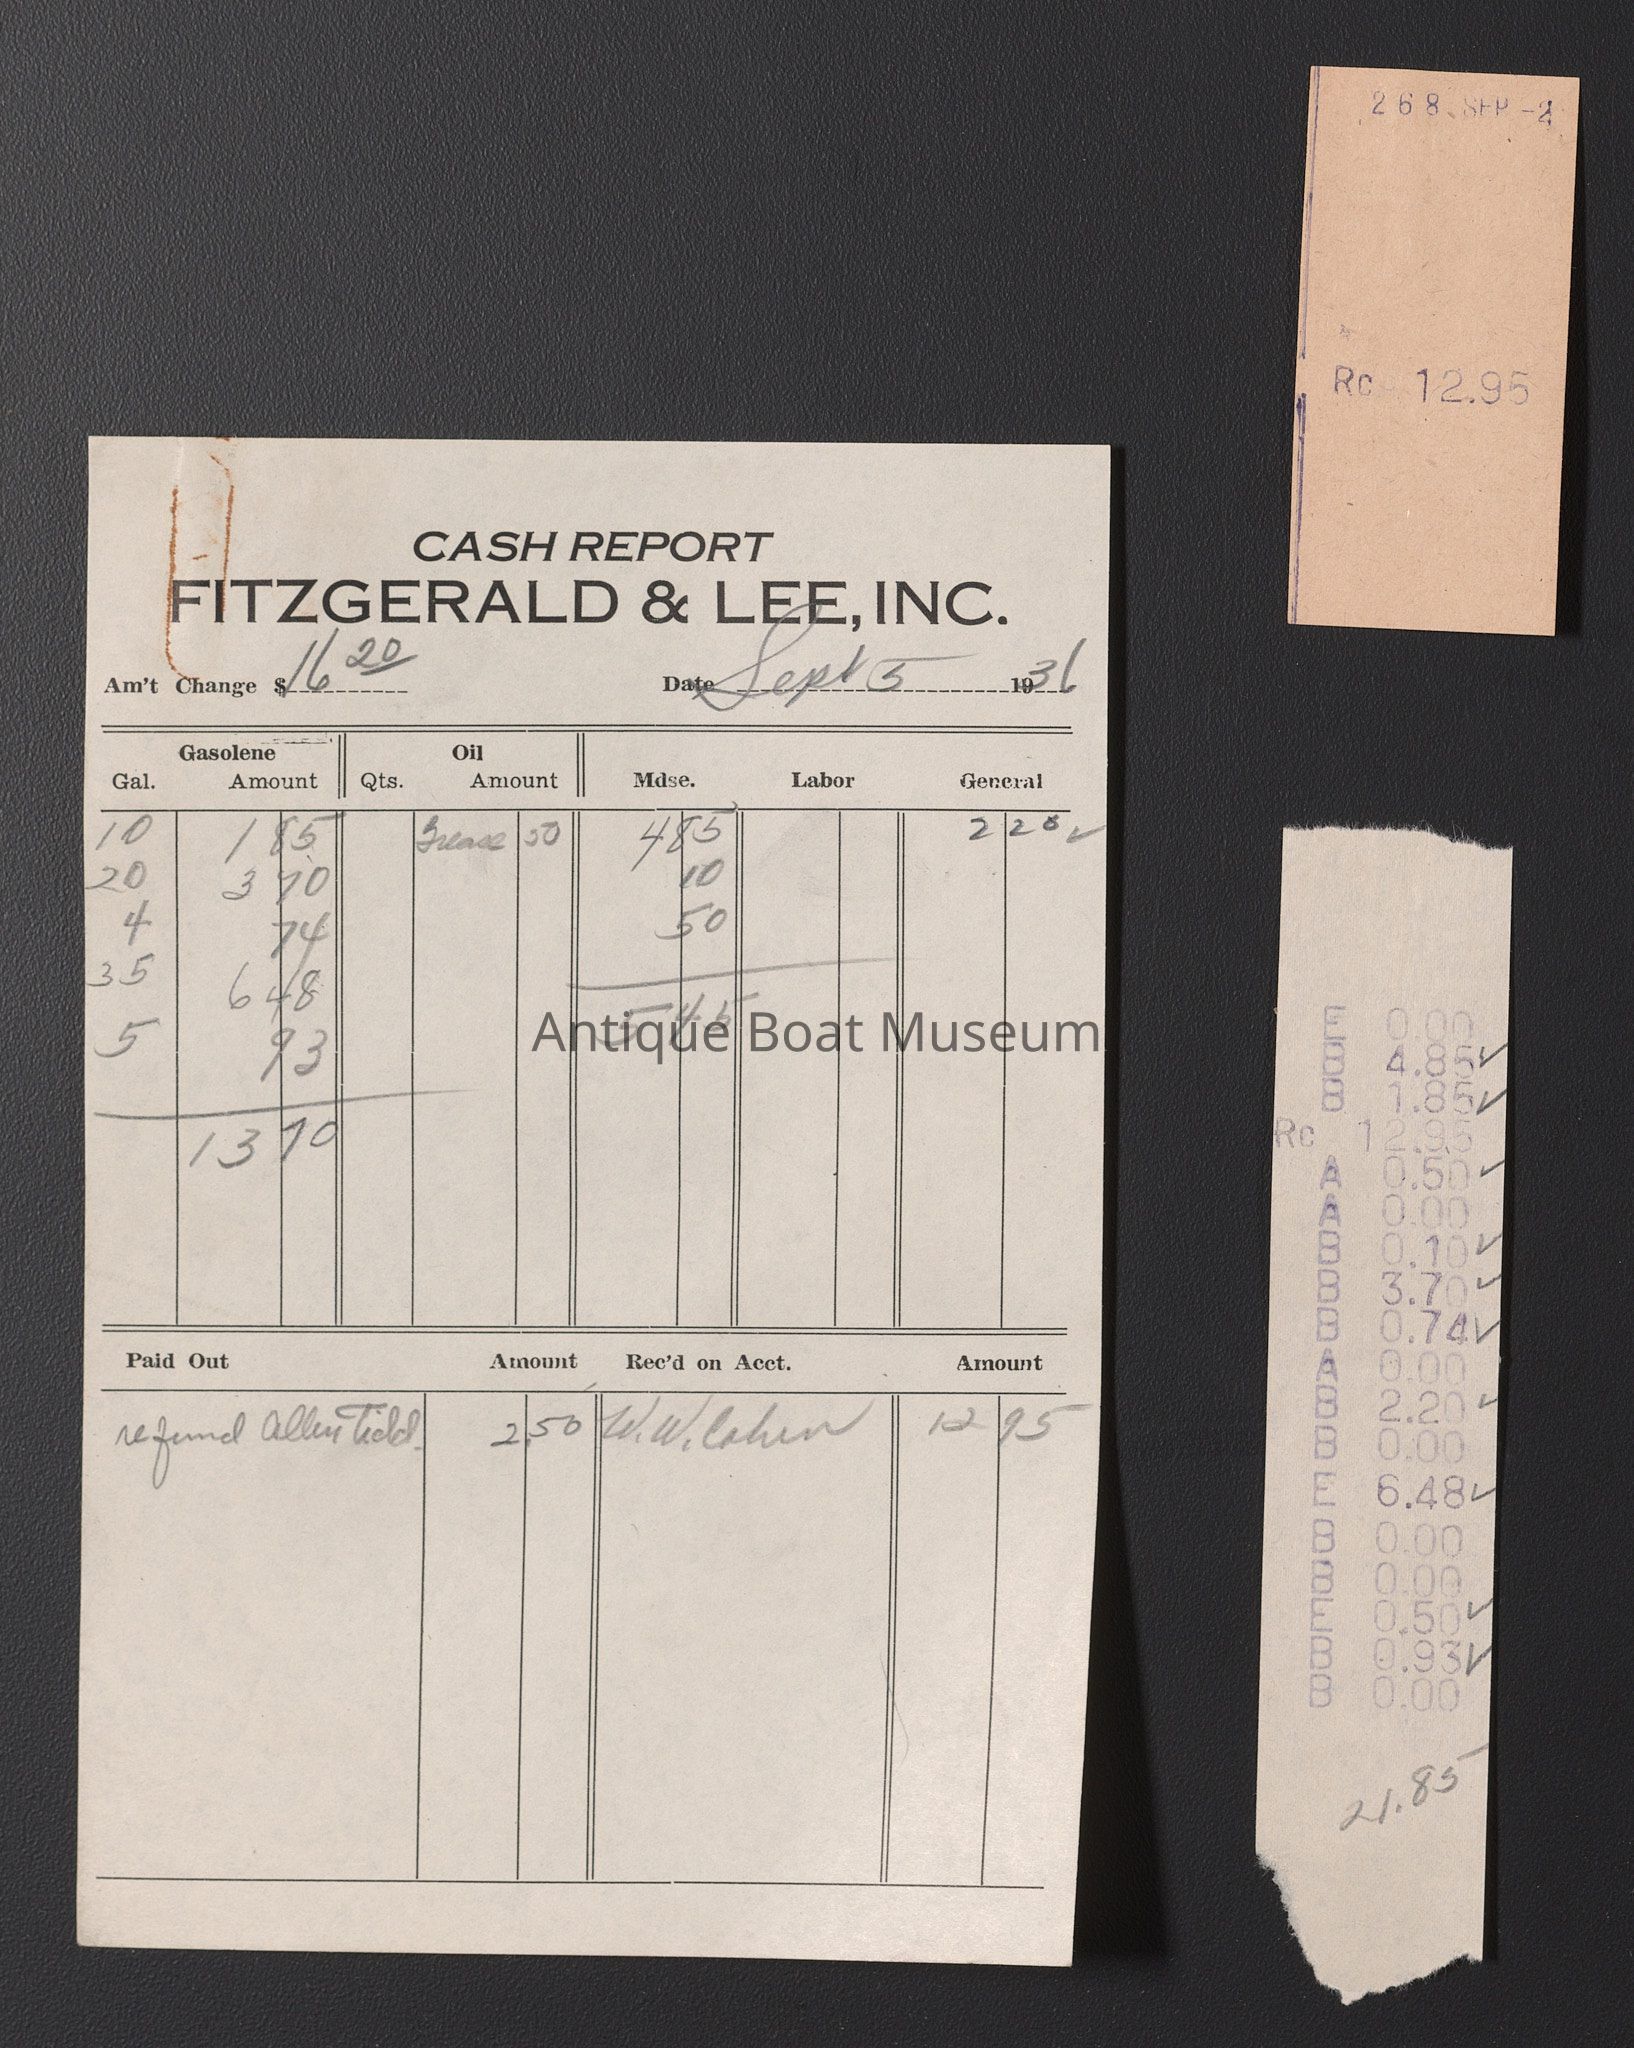 268 SEP -4
Rc 12.95
CASH REPORT
FITZGERALD & LEE, INC.
Am't Change $16 20 Date Sept 5 1936
Gasolene Oil
Gal. Amount Qts. Amount Mdse. Labor General
10 1 85 Grease 50 4 85 2 20 ✓
20 3 70 10
4 74 50
35 6 48
5 93 5 45
13 70
Paid Out Amount Rec'd on Acct. Amount
refund Allen Tidd 2 50 W. W. Cohen 12 95
Antique Boat Museum
E 0.00
B 4.85 ✓
B 1.85 ✓
Rc 12.95
A 0.50 ✓
A 0.00
B 0.10 ✓
B 3.70 ✓
B 0.74 ✓
A 0.00
B 2.20 ✓
B 0.00
E 6.48 ✓
B 0.00
B 0.00
E 0.50 ✓
B 0.93 ✓
B 0.00
21.85